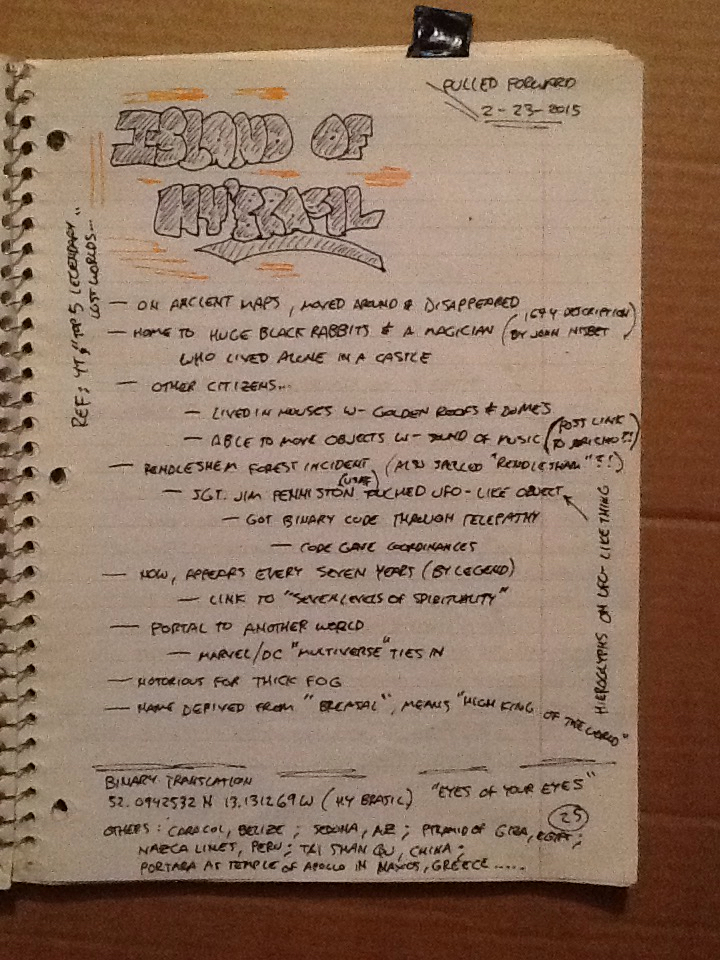 PULLED FORWARD
2-23-2015
ISLAND OF
HY'BRASIL
REF: YT, "TOP 5 LEGENDARY
LOST WORLDS...
— ON ANCIENT MAPS, MOVED AROUND & DISAPPEARED
— HOME TO HUGE BLACK RABBITS & A MAGICIAN (1674 DESCRIPTION
BY JOHN NISBET)
WHO LIVED ALONE IN A CASTLE
— OTHER CITIZENS...
— LIVED IN HOUSES W- GOLDEN ROOFS & DOMES
— ABLE TO MOVE OBJECTS W- SOUND OF MUSIC (POSS LINK
TO JERICHO?!)
— RENDLESHEM FOREST INCIDENT (ALSO "RENDLESHAM"?!)
(USAF)
— SGT. JIM PENNISTON TOUCHED UFO-LIKE OBJECT
— GOT BINARY CODE THROUGH TELEPATHY
— CODE GAVE COORDINANCES
HIEROGLYPHS ON UFO-LIKE THING
— NOW, APPEARS EVERY SEVEN YEARS (BY LEGEND)
— LINK TO "SEVEN LEVELS OF SPIRITUALITY"
— PORTAL TO ANOTHER WORLD
— MARVEL/DC "MULTIVERSE" TIES IN
— NOTORIOUS FOR THICK FOG
— NAME DERIVED FROM "BREASAL", MEANS "HIGH KING OF THE WORLD"
BINARY TRANSLATION
"EYES OF YOUR EYES"
52.0942532 N 13.131269 W (HY BRASIL)
25
OTHERS: CARACOL, BELIZE; SEDONA, AZ; PYRAMID OF GIZA, EGYPT;
NAZCA LINES, PERU; TAI SHAN QU, CHINA;
PORTARA AT TEMPLE OF APOLLO IN NAXOS, GREECE.....